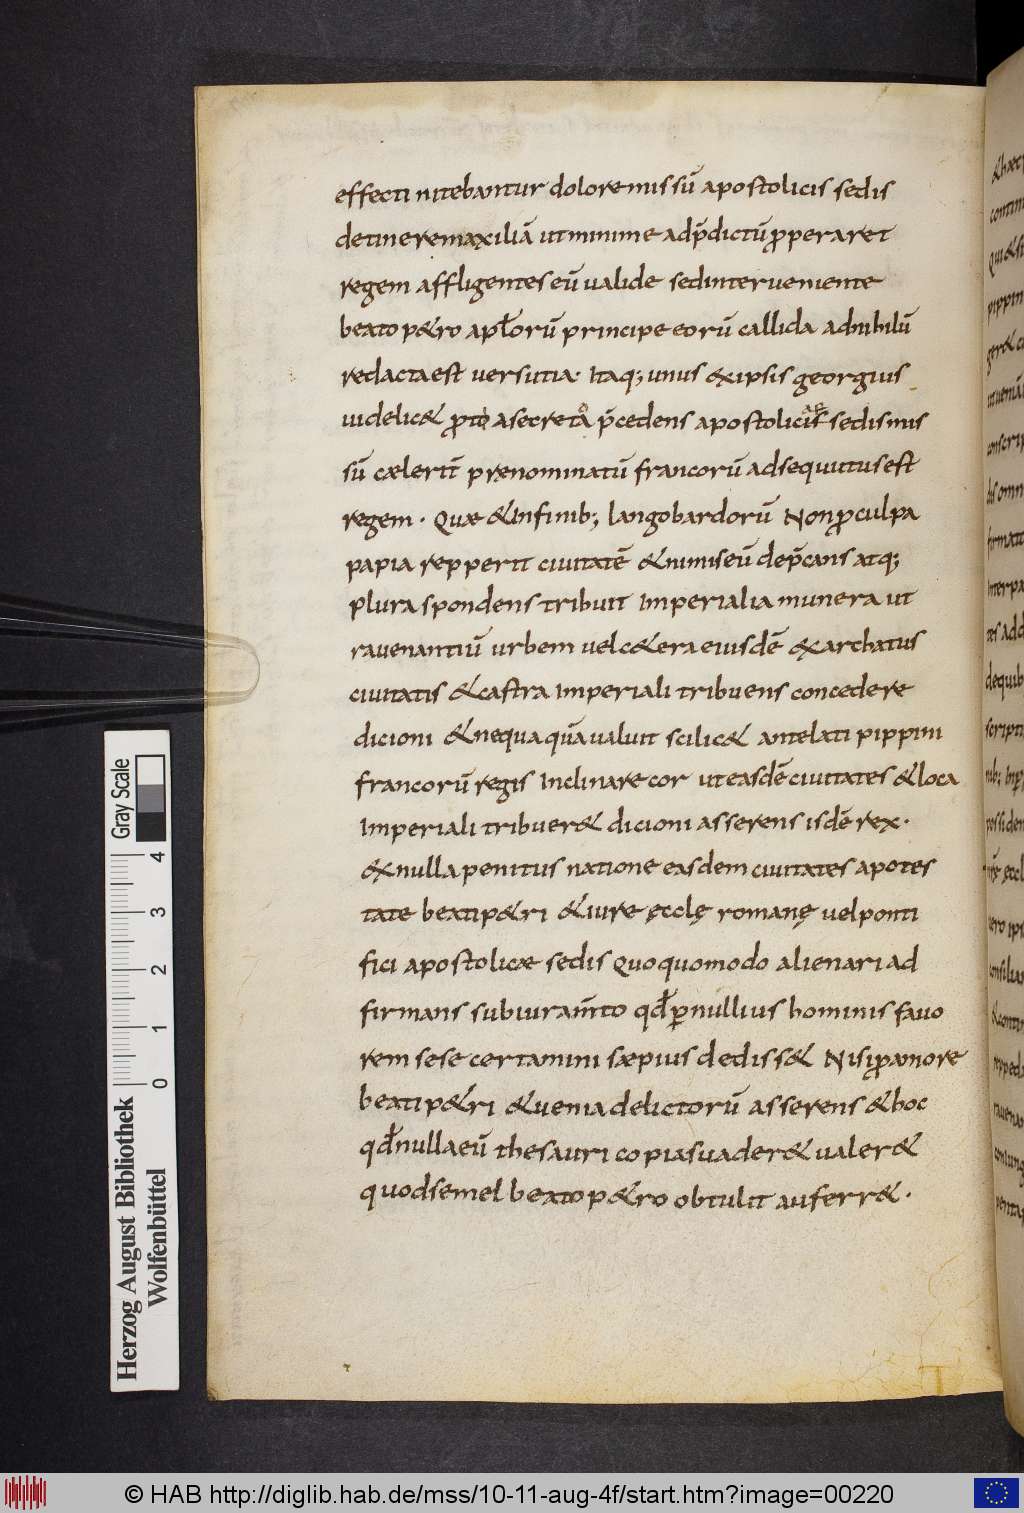 effecti nitebantur dolore missū apostolicis sedis
detinere maxiliā ut minime ad p̄dictū properaret
regem affligentes eū ualide sed interueniente
beato p&ro apłorū principe eorū callida adnihilū
redacta est uersutia· Itaq; unus &xipsis georgius
uidelic& proto asecreta p̄cedens apostolicis sedis mis
sū cælerit̄ prænominatū francorū adsequutus est
regem· Quæ &infinib; langobardorū Non procul pa
papia repperit ciuitatē &nimis eū dep̄cans atq;
plura spondens tribuit Imperialia munera ut
rauenantiū urbem uel c&era eiusdē &xarchatus
ciuitatis &castra Imperiali tribuens concedere
dicioni &nequaquā ualuit scilic& antelati pippini
francorū regis Inclinare cor ut easdē ciuitates &loca
Imperiali tribuer& dicioni asserens isdē rex·
&xnulla penitus natione easdem ciuitates apotes
tate beati p&ri &iure ęcclę romanę uel ponti
fici apostolicæ sedis quoquomodo alienari ad
firmans sub iuram̄to qd̄ per nullius hominis fauo
rem sese certamini sæpius dediss& Nisi pro amore
beati p&ri &uenia delictorū asserens &hoc
qd̄ nulla eū thesauri copia suader& ualer&
quod semel beato p&ro obtulit auferr&·
Herzog August Bibliothek
Wolfenbüttel
Gray Scale
0 1 2 3 4
© HAB http://diglib.hab.de/mss/10-11-aug-4f/start.htm?image=00220